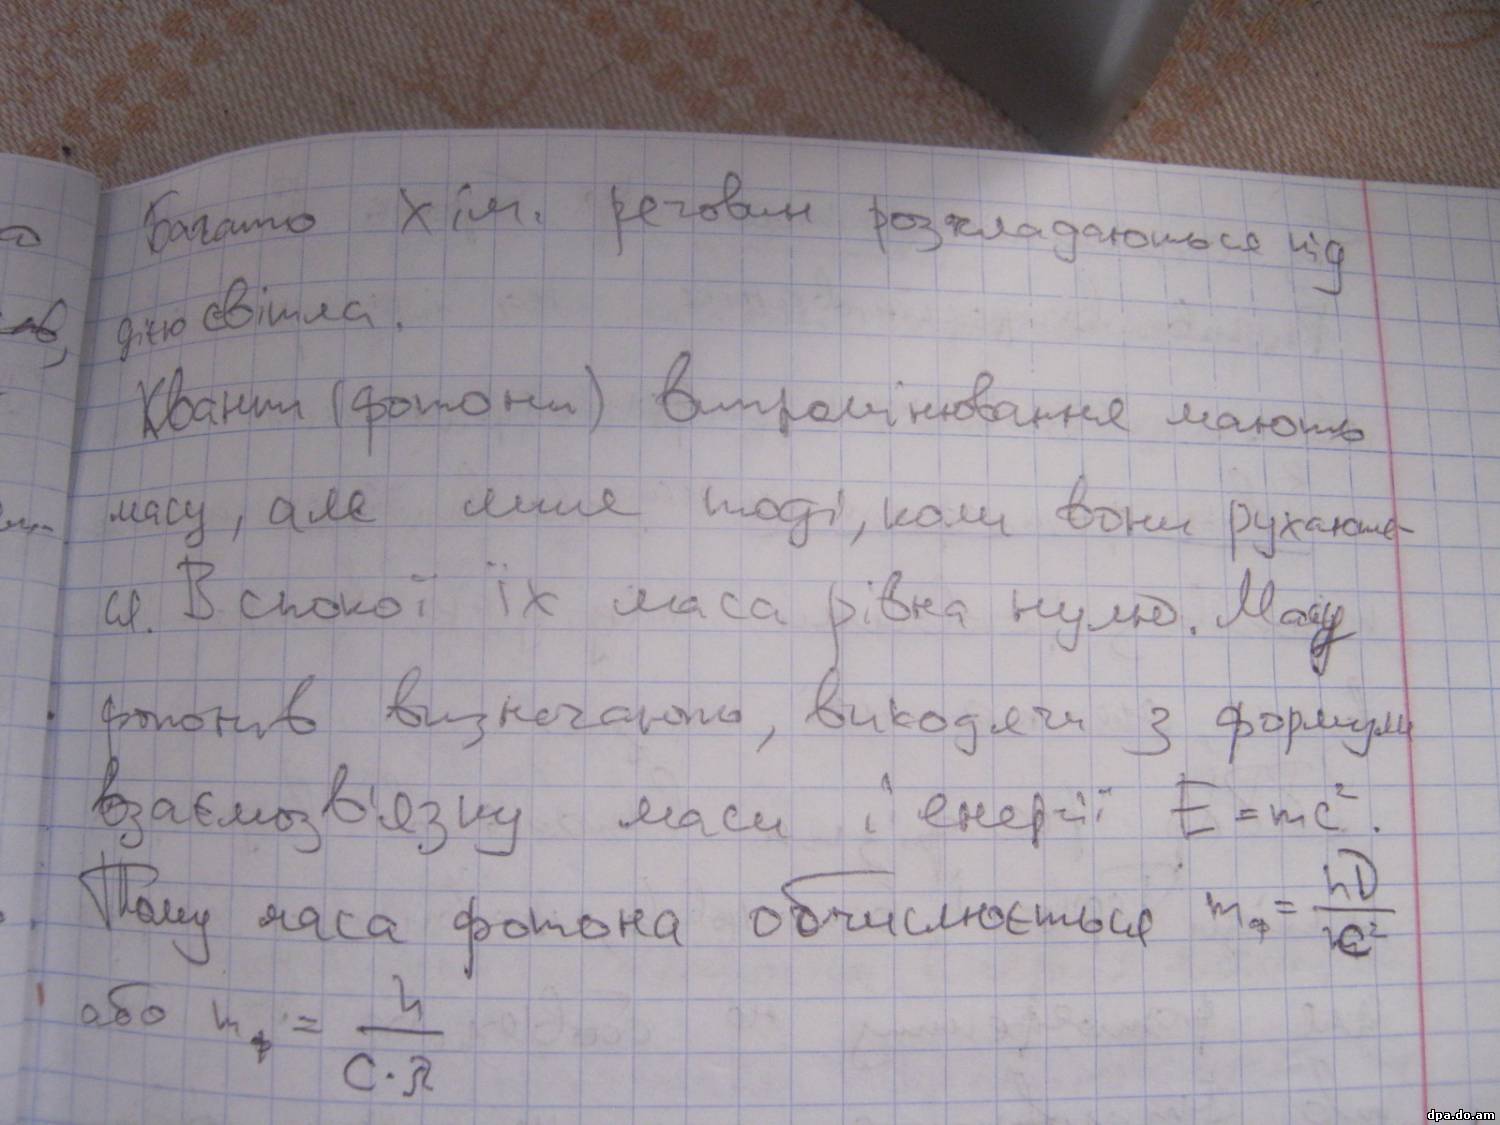 Багато хім. речовин розкладаються під
дією світла.
Кванти (фотони) випромінювання мають
масу, але лише тоді, коли вони рухають-
ся. В спокої їх маса рівна нулю. Масу
фотонів визначають, виходячи з формули
взаємозв'язку маси і енергії E = mc².
Тому маса фотона обчислюється mф = hν/c²
або mф = h/c·λ
dpa.do.am